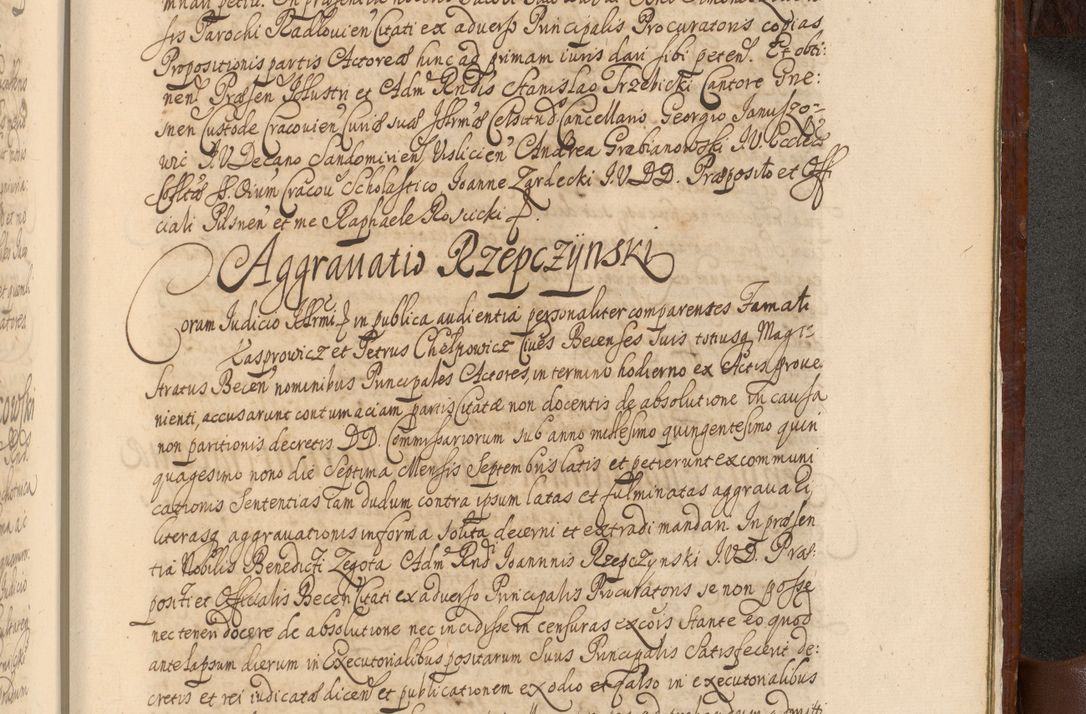 srs Parochi Radlouien Citati ex aduerso Principalis Procuratoris copias
Propositionis partis Actoreæ hinc ad primam iuris dari sibi peten. Et obti:
nen. Præsen Illustri et Adm Rndis Stanislao Trzebicki Cantore Gne:
snen Custode Cracouien Curiæ suæ Illrmæ Celsitud Cancellario Georgio Janusz
wic I.V.D. Decano Sandomirien Visliciен Andrea Grabianowski I.V.
SS. Oium Cracou Scholastico, Ioanne Zardecki I.V.D.D. Præposito et Offi
ciali Pilsnen et me Raphaele Rosucki
Aggrauatio Rzepczÿnski
Coram Iudicio Illrmi in publica audientia personaliter comparentes Famati
Kasprowicz et Petrus Chelpowicz Ciues Becenses Suis totiusq Magi:
stratus Becen nominibus Principales Actores, in termino hodierno ex Actis proue
nienti, accusarunt contumaciam partis Citatæ non docentis de absolutione in causa
non paritionis decretis DD. Commissariorum sub anno millesimo quingentesimo quin
quagesimo nono die Septima Mensis Septembris latis et petierunt excommuni
cationis Sententias iam dudum contra ipsum latas et fulminatas aggrauari
literasq aggrauationis in forma solita decerni et extradi mandari In præsen
tia Nobilis Benedicti Zegota Adm Rnd Ioannnis Rzepczynski I.V.D. Præ:
positi et Officialis Becen Citati ex aduerso Principalis Procuratoris se non posse
nec teneri docere de absolutione nec incidisse in censuras excois stante eo quod
ante lapsum dierum in Executorialibus positarum Suus Principalis Satisfecerit de:
cretis et rei iudicatæ dicen et publicationem ex odio et falso in executorialibus